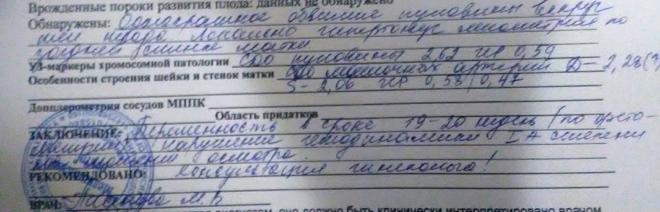 Врожденные пороки развития плода: данных не обнаружено
Обнаружены: Однократное обвитие пуповины вокруг
шеи плода. Локально гипертонус миометрия по
задней стенке матки
УЗ-маркеры хромосомной патологии СДО пуповины 2,63 ИР 0,59
Особенности строения шейки и стенок матки СДО маточных артерий D-2,28(
S-2,06 ИР 0,58/0,47
Допплерометрия сосудов МППК
Область придатков
ЗАКЛЮЧЕНИЕ: Беременность в сроке 19-20 недель (по фето-
метрии). Нарушение гемодинамики I А степени
осмотра.
РЕКОМЕНДОВАНО: Консультация гинеколога!
ВРАЧ М.В
оно должно быть клинически интерпретировано врачом